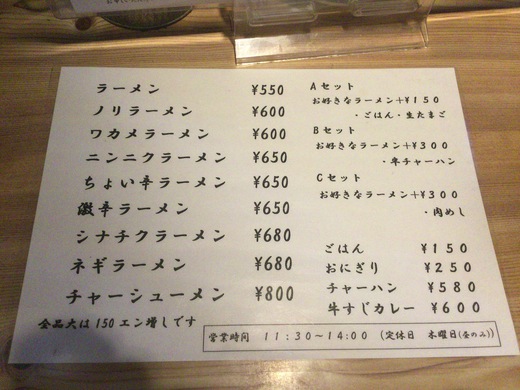 ラーメン ¥550
ノリラーメン ¥600
ワカメラーメン ¥600
ニンニクラーメン ¥650
ちょい辛ラーメン ¥650
激辛ラーメン ¥650
シナチクラーメン ¥680
ネギラーメン ¥680
チャーシューメン ¥800
全品大は150エン増しです
Aセット
お好きなラーメン+¥150
・ごはん・生たまご
Bセット
お好きなラーメン+¥300
・半チャーハン
Cセット
お好きなラーメン+¥300
・肉めし
ごはん ¥150
おにぎり ¥250
チャーハン ¥580
牛すじカレー ¥600
営業時間 11:30~14:00 (定休日 木曜日(昼のみ))